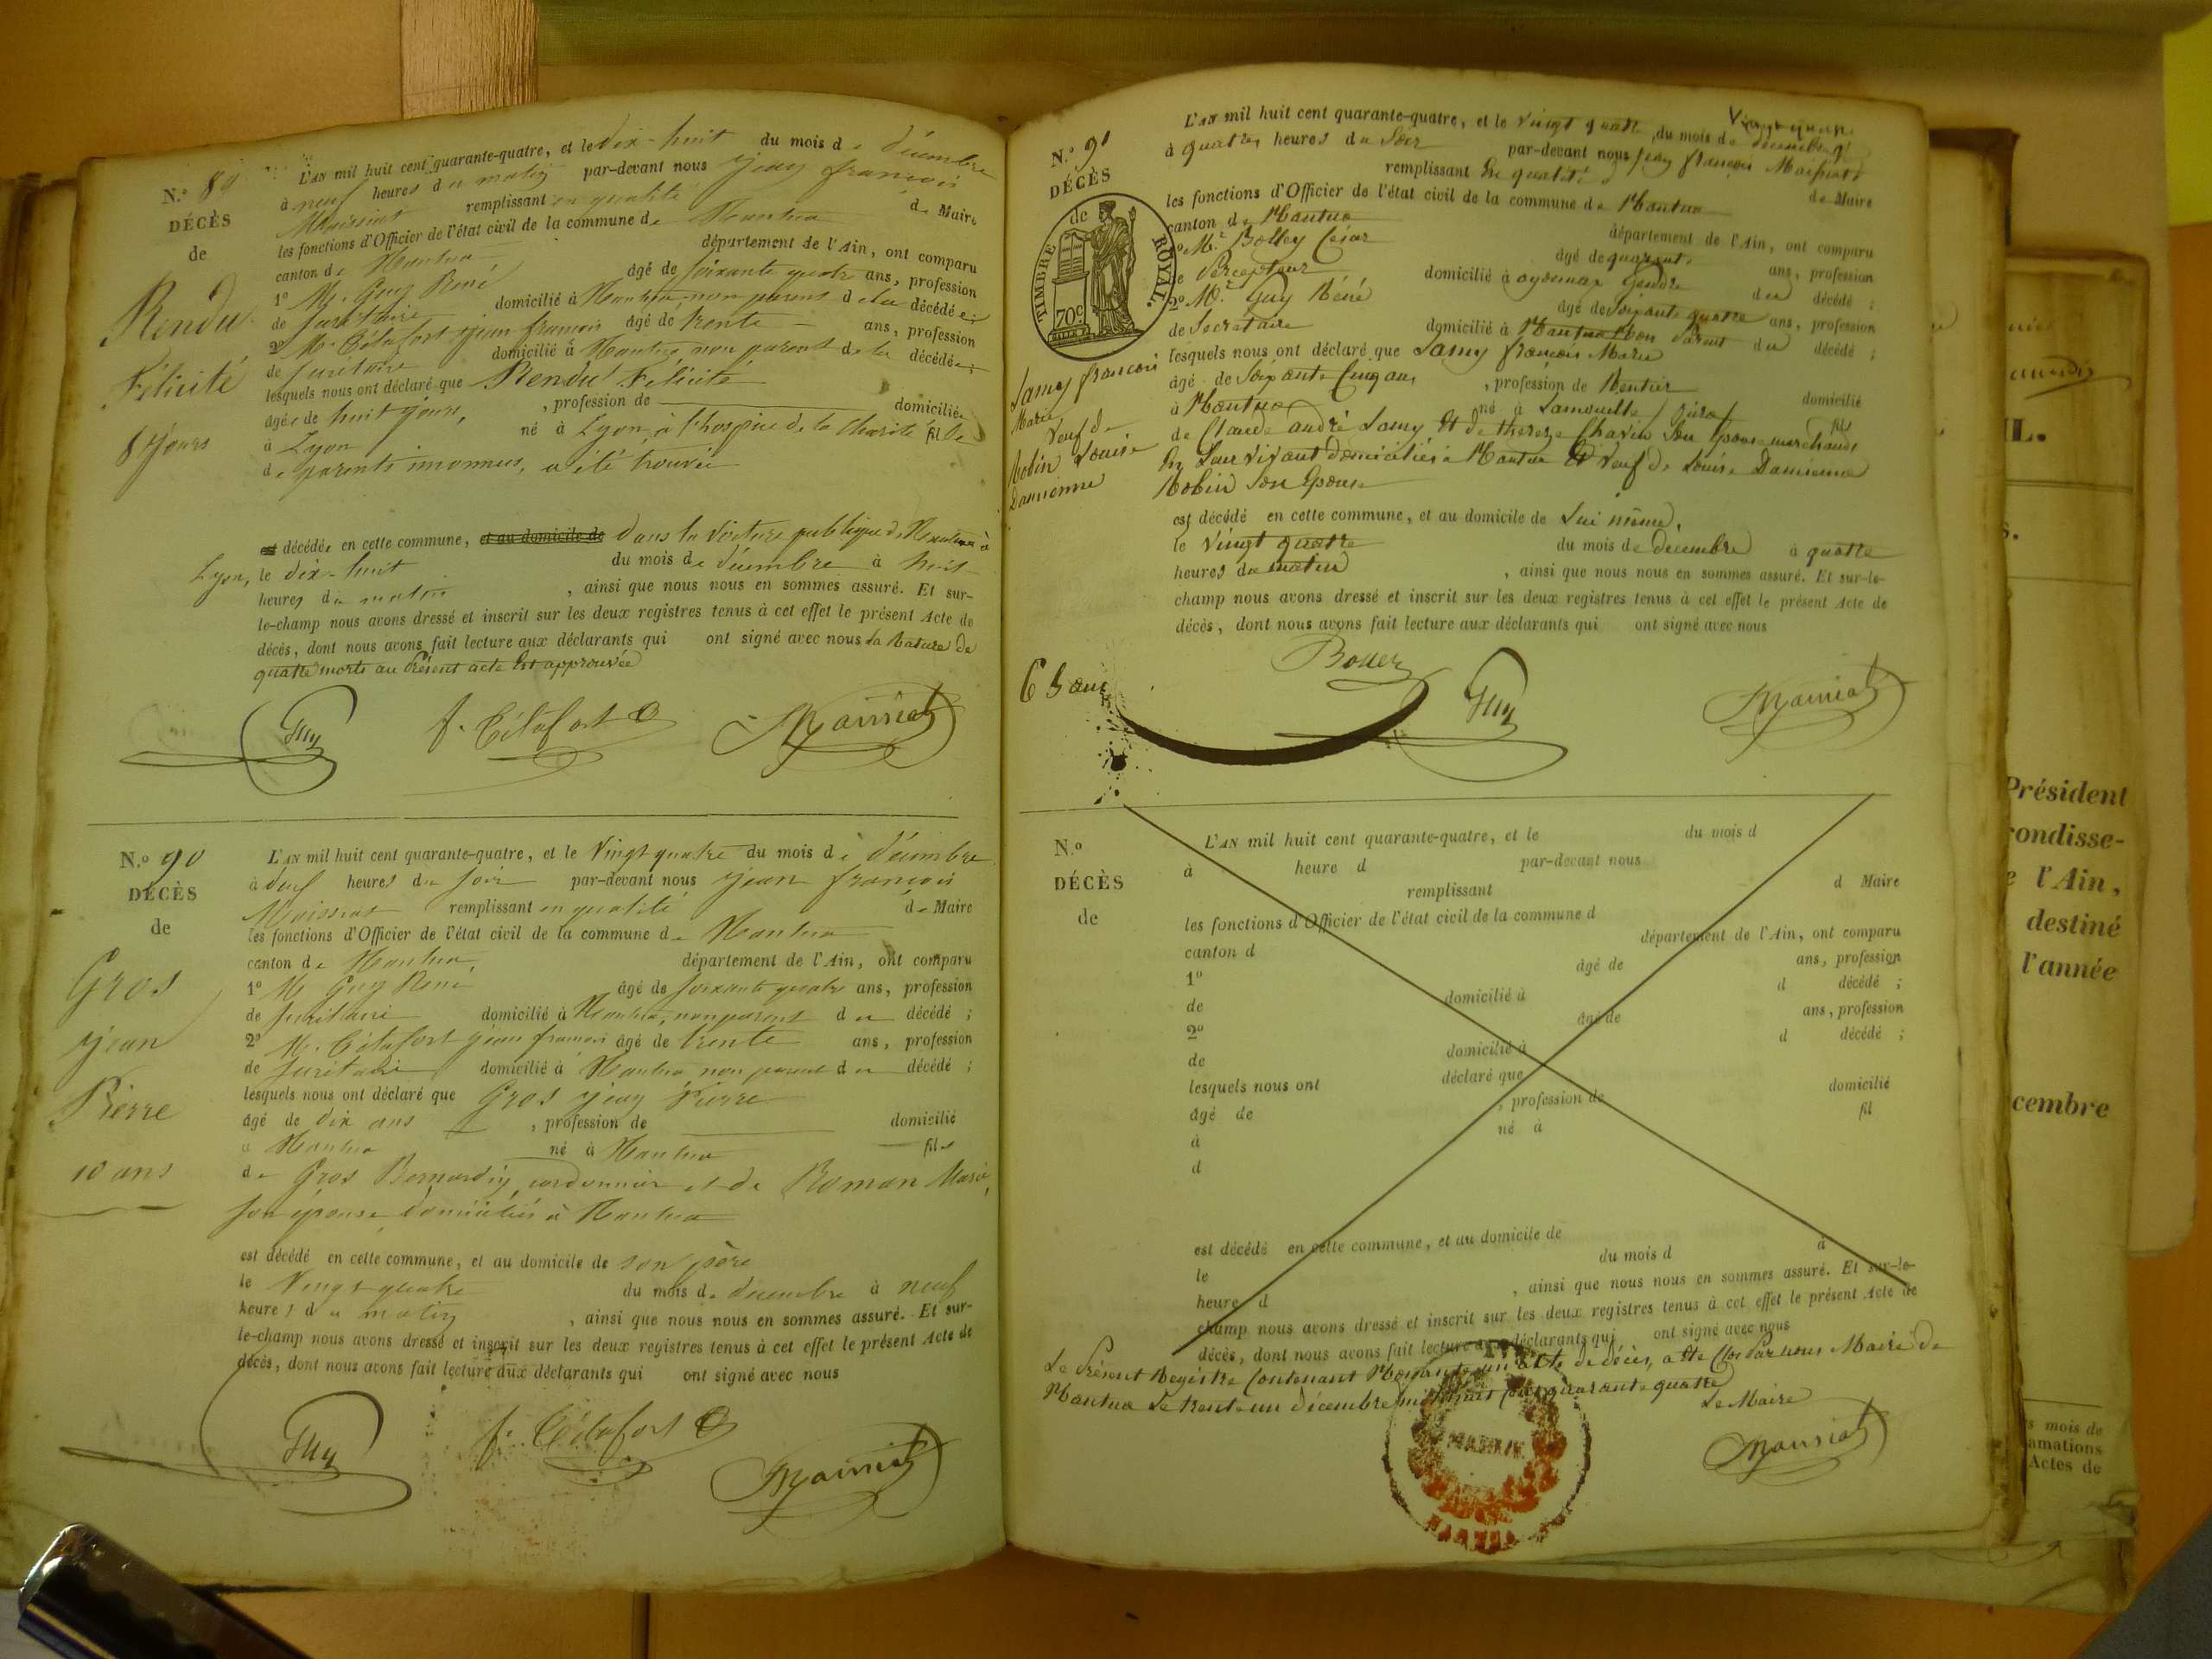 N.° 89
DÉCÈS
de
Rendu
Félicité
8 jours
L'AN mil huit cent quarante-quatre, et le dix-huit du mois de décembre
à neuf heures du matin par-devant nous jean françois
Maissiat remplissant en qualité de Maire
les fonctions d'Officier de l'état civil de la commune de Nantua
canton de Nantua département de l'Ain, ont comparu
1° M. Guy René âgé de soixante quatre ans, profession
de secrétaire domicilié à Nantua non parent de la décédée;
2° M. Célafort jean françois âgé de trente ans, profession
de secrétaire domicilié à Nantua, non parent de la décédée;
lesquels nous ont déclaré que Rendu Félicité
âgée de huit jours, , profession de domiciliée
à Lyon né à Lyon, à l'hospice de la Charité fille
de parents inconnus, a été trouvée
est décédée en cette commune, et au domicile de dans la voiture publique de Nantua à
Lyon, le dix-huit du mois de décembre à huit
heures du matin , ainsi que nous nous en sommes assuré. Et sur-
le-champ nous avons dressé et inscrit sur les deux registres tenus à cet effet le présent Acte de
décès, dont nous avons fait lecture aux déclarants qui ont signé avec nous la Rature de
quatre morts au Présent acte Est approuvée
Guy f. Célafort Maissiat
N.° 90
DÉCÈS
de
Gros
jean
Pierre
10 ans
L'AN mil huit cent quarante-quatre, et le vingt quatre du mois de décembre
à deux heures du soir par-devant nous jean françois
Maissiat remplissant en qualité de Maire
les fonctions d'Officier de l'état civil de la commune de Nantua
canton de Nantua, département de l'Ain, ont comparu
1° M. Guy René âgé de soixante quatre ans, profession
de secrétaire domicilié à Nantua, non parent du décédé ;
2° M. Célafort jean françois âgé de trente ans, profession
de secrétaire domicilié à Nantua, non parent du décédé ;
lesquels nous ont déclaré que Gros jean Pierre
âgé de dix ans , profession de domicilié
à Nantua né à Nantua fils
de Gros Bernardin, cordonnier et de Roman Marie,
son épouse domiciliés à Nantua
est décédé en cette commune, et au domicile de son père
le vingt quatre du mois de decembre à neuf
heures du matin , ainsi que nous nous en sommes assuré. Et sur-
le-champ nous avons dressé et inscrit sur les deux registres tenus à cet effet le présent Acte de
décès, dont nous avons fait lecture aux déclarants qui ont signé avec nous
Guy f. Célafort Maissiat
N.° 91
DÉCÈS
de
TIMBRE ROYAL.
70c
Lamy françois
Marie
Veuf de
Robin Louise
Damienne
65 ans
L'AN mil huit cent quarante-quatre, et le vingt quatre du mois de décembre
à quatre heures du soir par-devant nous jean françois Maissiat
remplissant En qualité de Maire
les fonctions d'Officier de l'état civil de la commune de Nantua
canton de Nantua département de l'Ain, ont comparu
1° M.r Bolley César âgé de quarante ans, profession
de Percepteur domicilié à oyonnax Gendre du décédé ;
2° M.r Guy Réné âgé de soixante quatre ans, profession
de Secrétaire domicilié à Nantua Non Parent du décédé ;
lesquels nous ont déclaré que Lamy françois Marie
âgé de Soixante Cinq ans , profession de Rentier domicilié
à Nantua né à Lamouille (Jura) fils
de Claude andré Lamy Et de thereze Chavin Son Epouse marchands
En Leur Vivant domiciliés à Nantua Et Veuf de Louise Damienne
Robin Son Epouse
est décédé en cette commune, et au domicile de Lui même,
le vingt quatre du mois de decembre à quatre
heures du matin , ainsi que nous nous en sommes assuré. Et sur-le-
champ nous avons dressé et inscrit sur les deux registres tenus à cet effet le présent Acte de
décès, dont nous avons fait lecture aux déclarants qui ont signé avec nous
Guy Maissiat
N.°
DÉCÈS
de
L'AN mil huit cent quarante-quatre, et le du mois d
à heure d par-devant nous
remplissant d Maire
les fonctions d'Officier de l'état civil de la commune d
canton d département de l'Ain, ont comparu
1° âgé de ans, profession
de domicilié à d décédé ;
2° âgé de ans, profession
de domicilié à d décédé ;
lesquels nous ont déclaré que
âgé de , profession de domicilié
à né à fil
d
est décédé en cette commune, et au domicile de
le du mois d à
heure d , ainsi que nous nous en sommes assuré. Et sur-le-
champ nous avons dressé et inscrit sur les deux registres tenus à cet effet le présent Acte de
décès, dont nous avons fait lecture aux déclarants qui ont signé avec nous
Le Présent Registre Contenant acte de décès, a été Clos Par nous Maire de
Nantua Le trente un décembre mil huit cent quarante quatre
Le Maire
Maissiat
MAIRIE
IL.
S.
Président
rondisse-
l'Ain,
destiné
l'année
cembre
s mois de
amations
Actes de